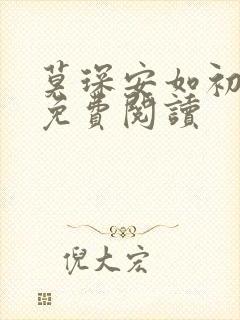 莫琛安如初
免費閱讀
倪大宏